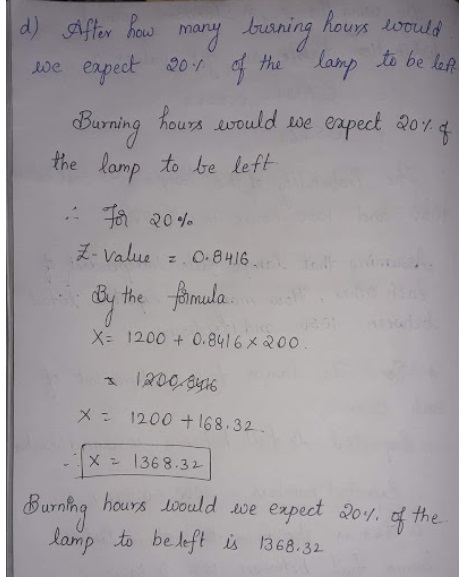 d) After how many burning hours would
we expect 20% of the lamp to be left
Burning hours would we expect 20% of
the lamp to be left
∴ For 20%
Z-value = 0.8416
By the formula
X= 1200 + 0.8416 × 200.
X = 1200 + 168.32.
∴ X = 1368.32
Burning hours would we expect 20% of the
lamp to be left is 1368.32